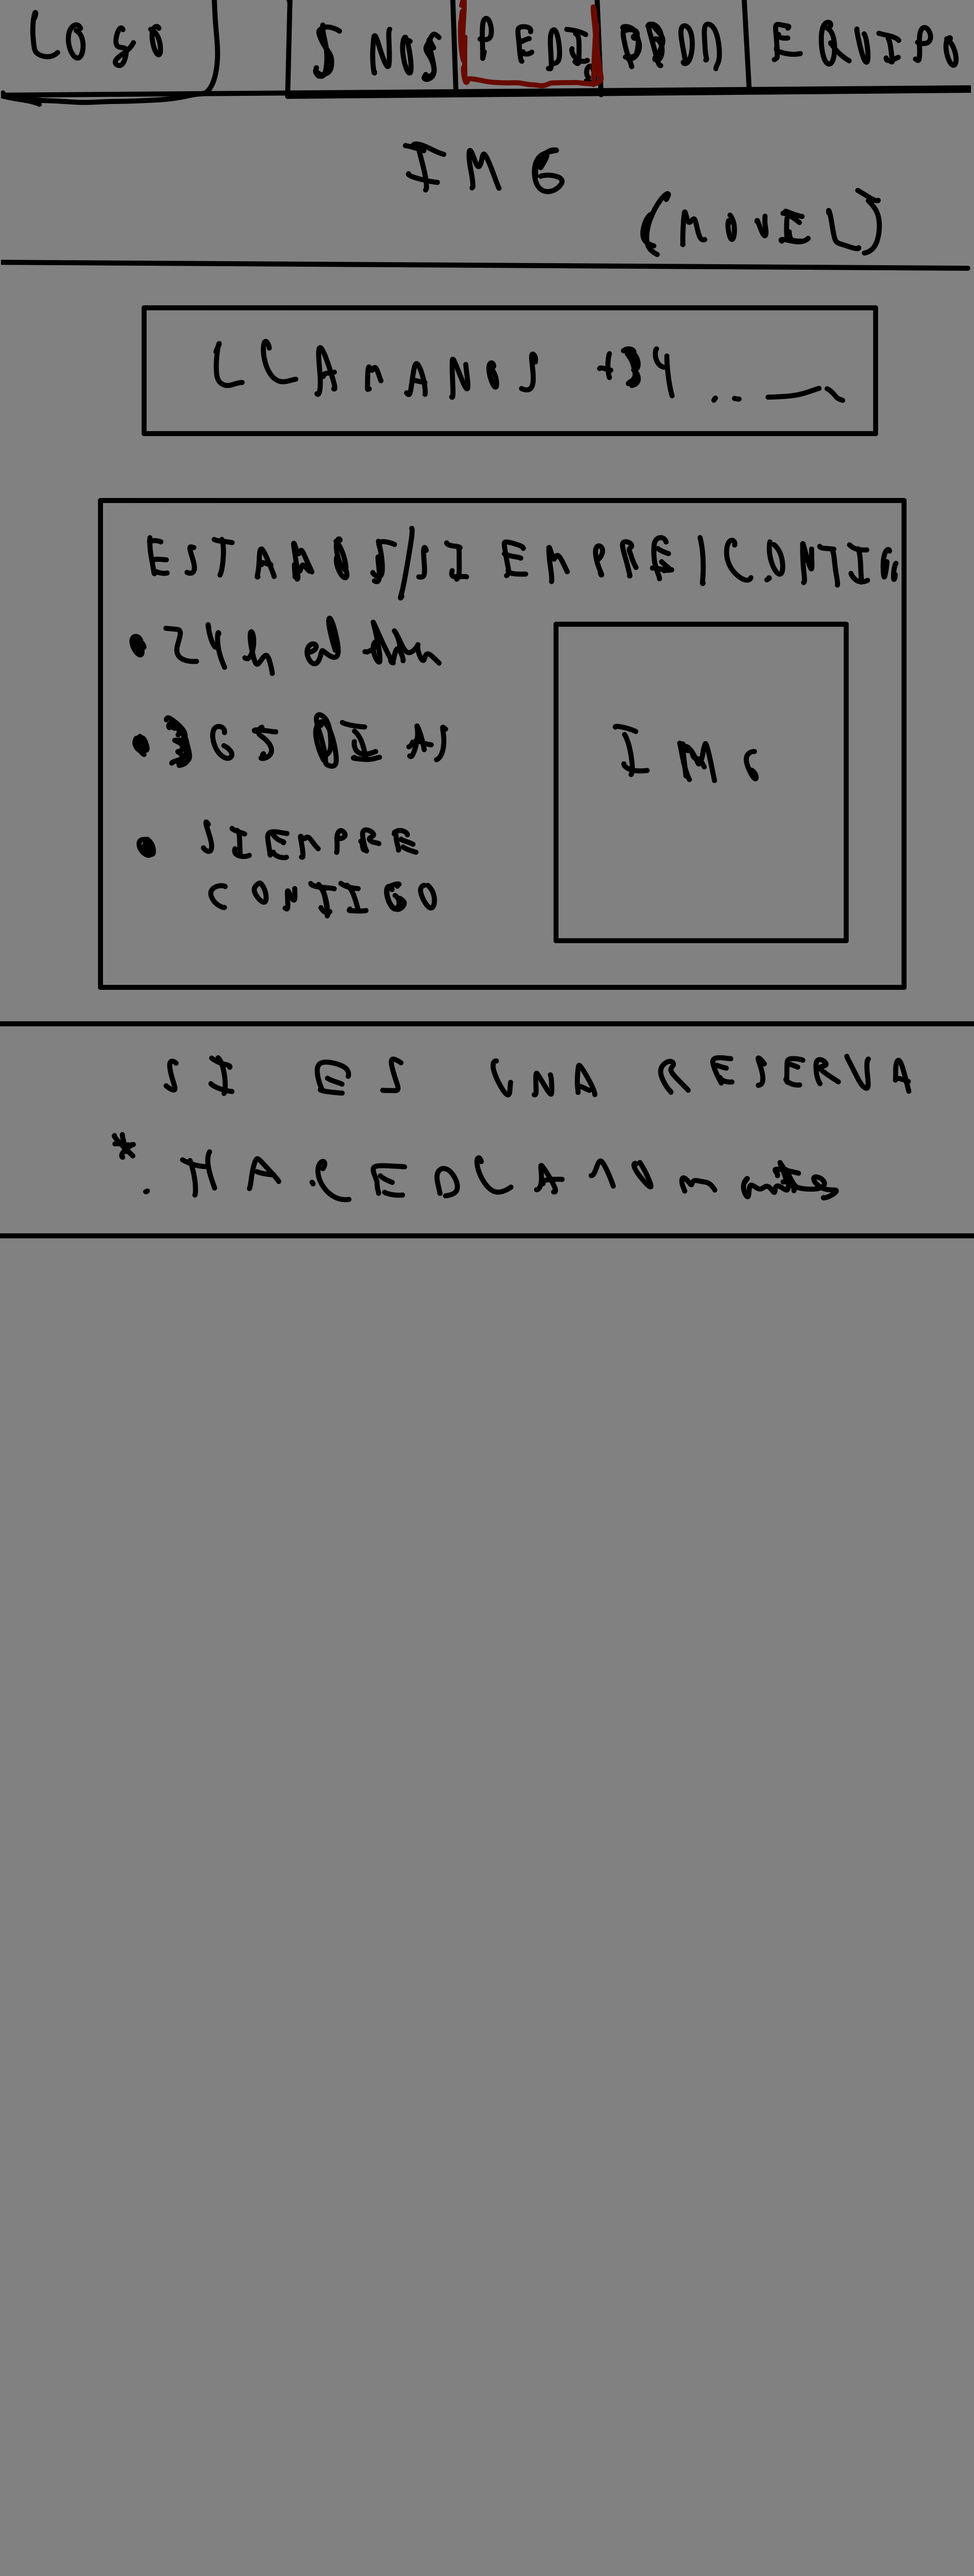 LOGO S NOS PEDI. EQUIPO
IMG
(MOVEL)
LLAMANOS +34 .. __
ESTAMOS/SIEMPRE/CONTIG
• 24h al
• 365 DIAS
IMG
• SIEMPRE
CONTIGO
SI ES UNA RESERVA
* . HACEDLA antes